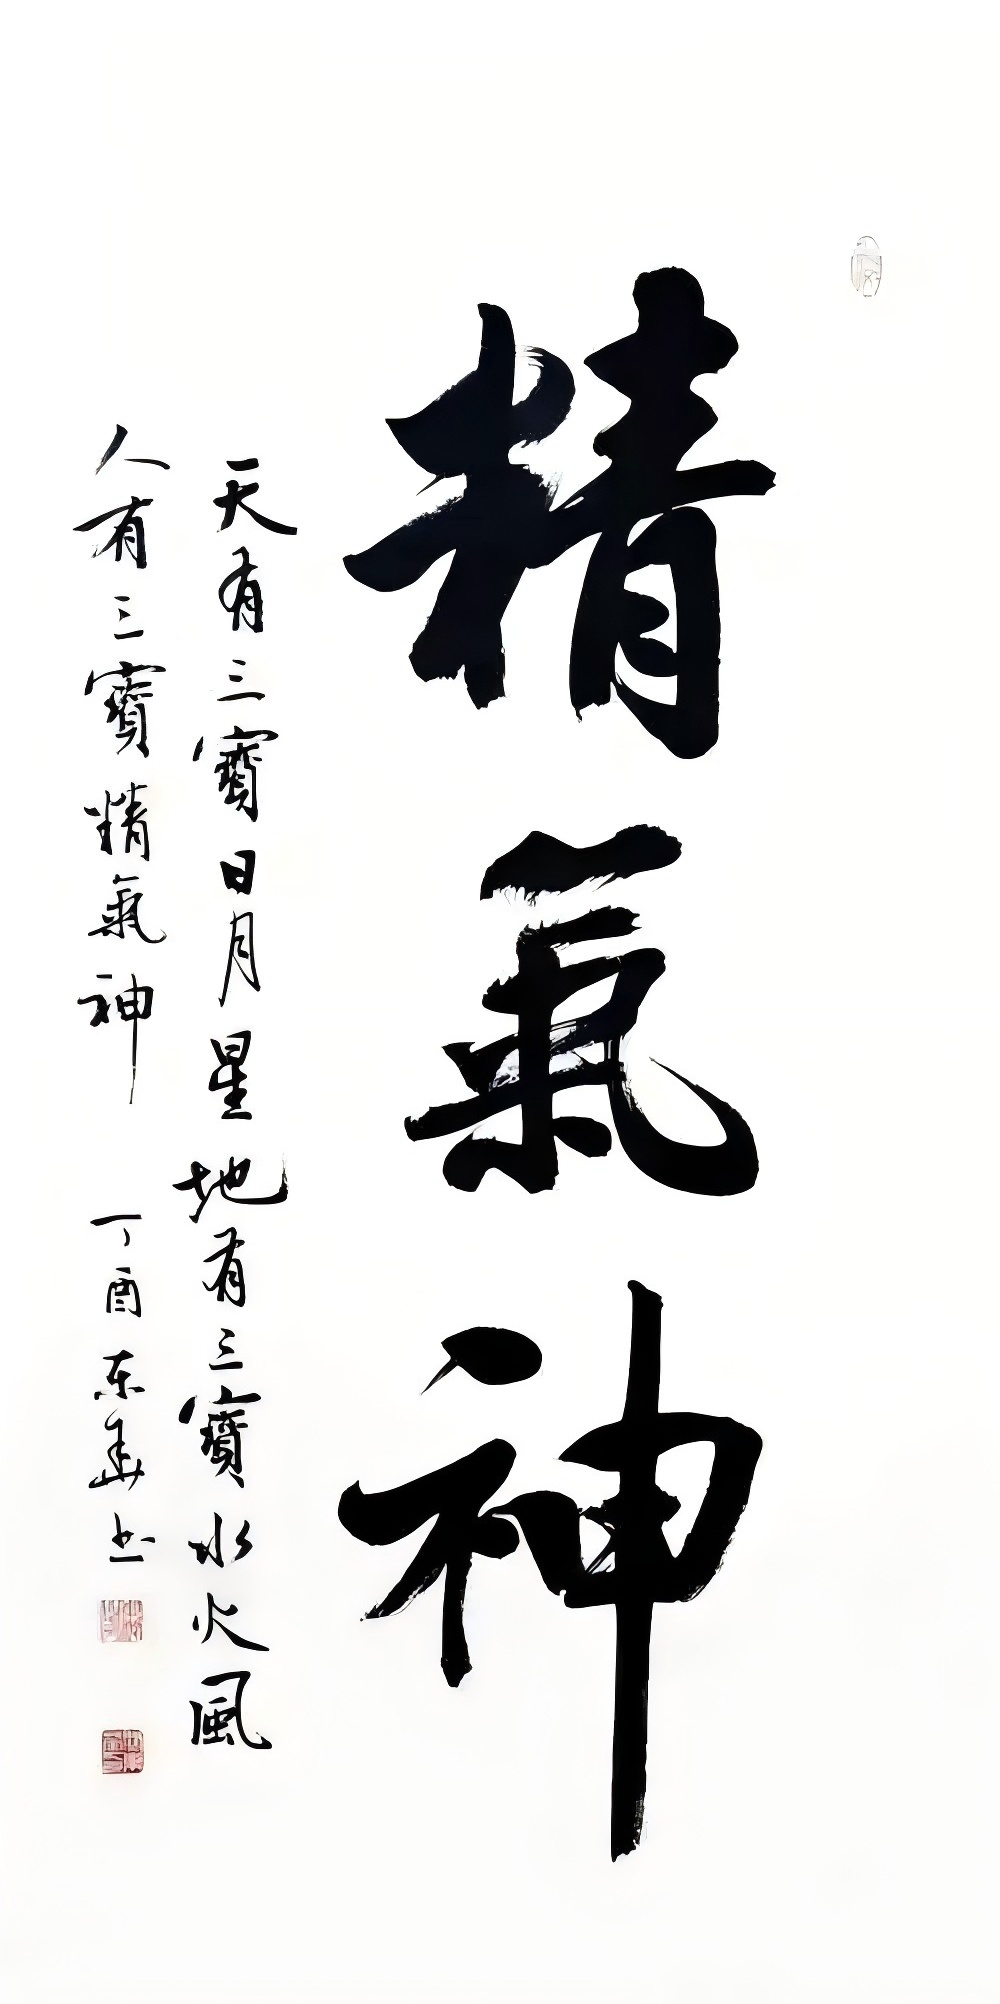 精氣神
天有三寶日月星地有三寶水火風
人有三寶精氣神 丁酉东華书